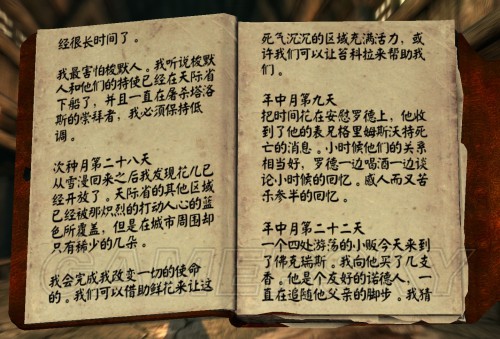 经很长时间了。
我最害怕梭默人。我听说梭默
人和他们的特使已经在天际省
下船了，并且一直在屠杀塔洛
斯的崇拜者，我必须保持低
调。
次种月第二十八天
从雪漫回来之后我发现花儿已
经开放了。天际省的其他区域
已经被那炽烈的打动人心的蓝
色所覆盖，但是在城市周围却
只有稀少的几朵。
我会完成我改变一切的使命
的。我们可以借助鲜花来让这
死气沉沉的区域充满活力，或
许我们可以让苔科拉来帮助我
们。
年中月第九天
把时间花在安慰罗德上，他收
到了他的表兄格里姆斯沃特死
亡的消息。小时候他们的关系
相当好，罗德一边喝酒一边谈
论小时候的回忆。感人而又苦
乐参半的回忆。
年中月第二十二天
一个四处游荡的小贩今天来到
了佛克瑞斯。我向他买了几支
香。他是个友好的诺德人，一
直在追随他父亲的脚步。我猜